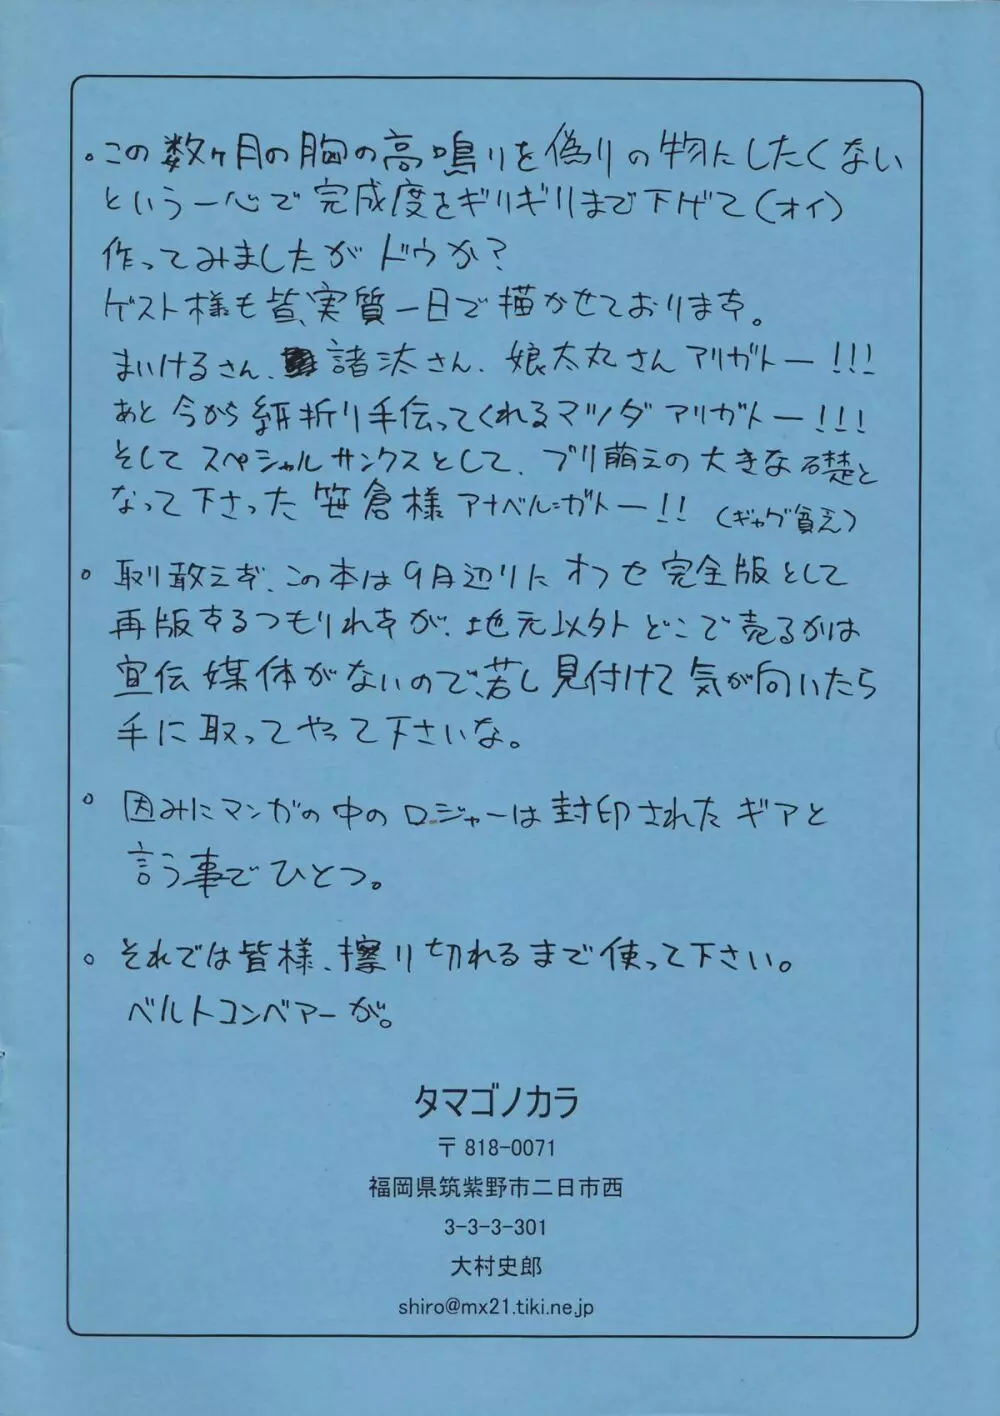 。この数ヶ月の胸の高鳴りを偽りの物にしたくない
という一心で完成度をギリギリまで下げて(オイ)
作ってみましたがドウか?
ゲスト様も皆、実質一日で描かせております。
まいけるさん、諸汰さん、娘太丸さんアリガトー!!!
あと今から紙折り手伝ってくれるマツダアリガトー!!!
そしてスペシャルサンクスとして、ブリ萌えの大きな礎と
なって下さった笹倉様アナベル=ガトー!!(ギャグ貧え)
。取り敢えず、この本は9月辺りにオフセ完全版として
再版するつもりれすが、地元以外どこで売るかは
宣伝媒体がないので、若し見付けて気が向いたら
手に取ってやって下さいな。
。因みにマンガの中のロジャーは封印されたギアと
言う事でひとつ。
。それでは皆様、擦り切れるまで使って下さい。
ベルトコンベアーが。
タマゴノカラ
〒818-0071
福岡県筑紫野市二日市西
3-3-3-301
大村史郎
shiro@mx21.tiki.ne.jp